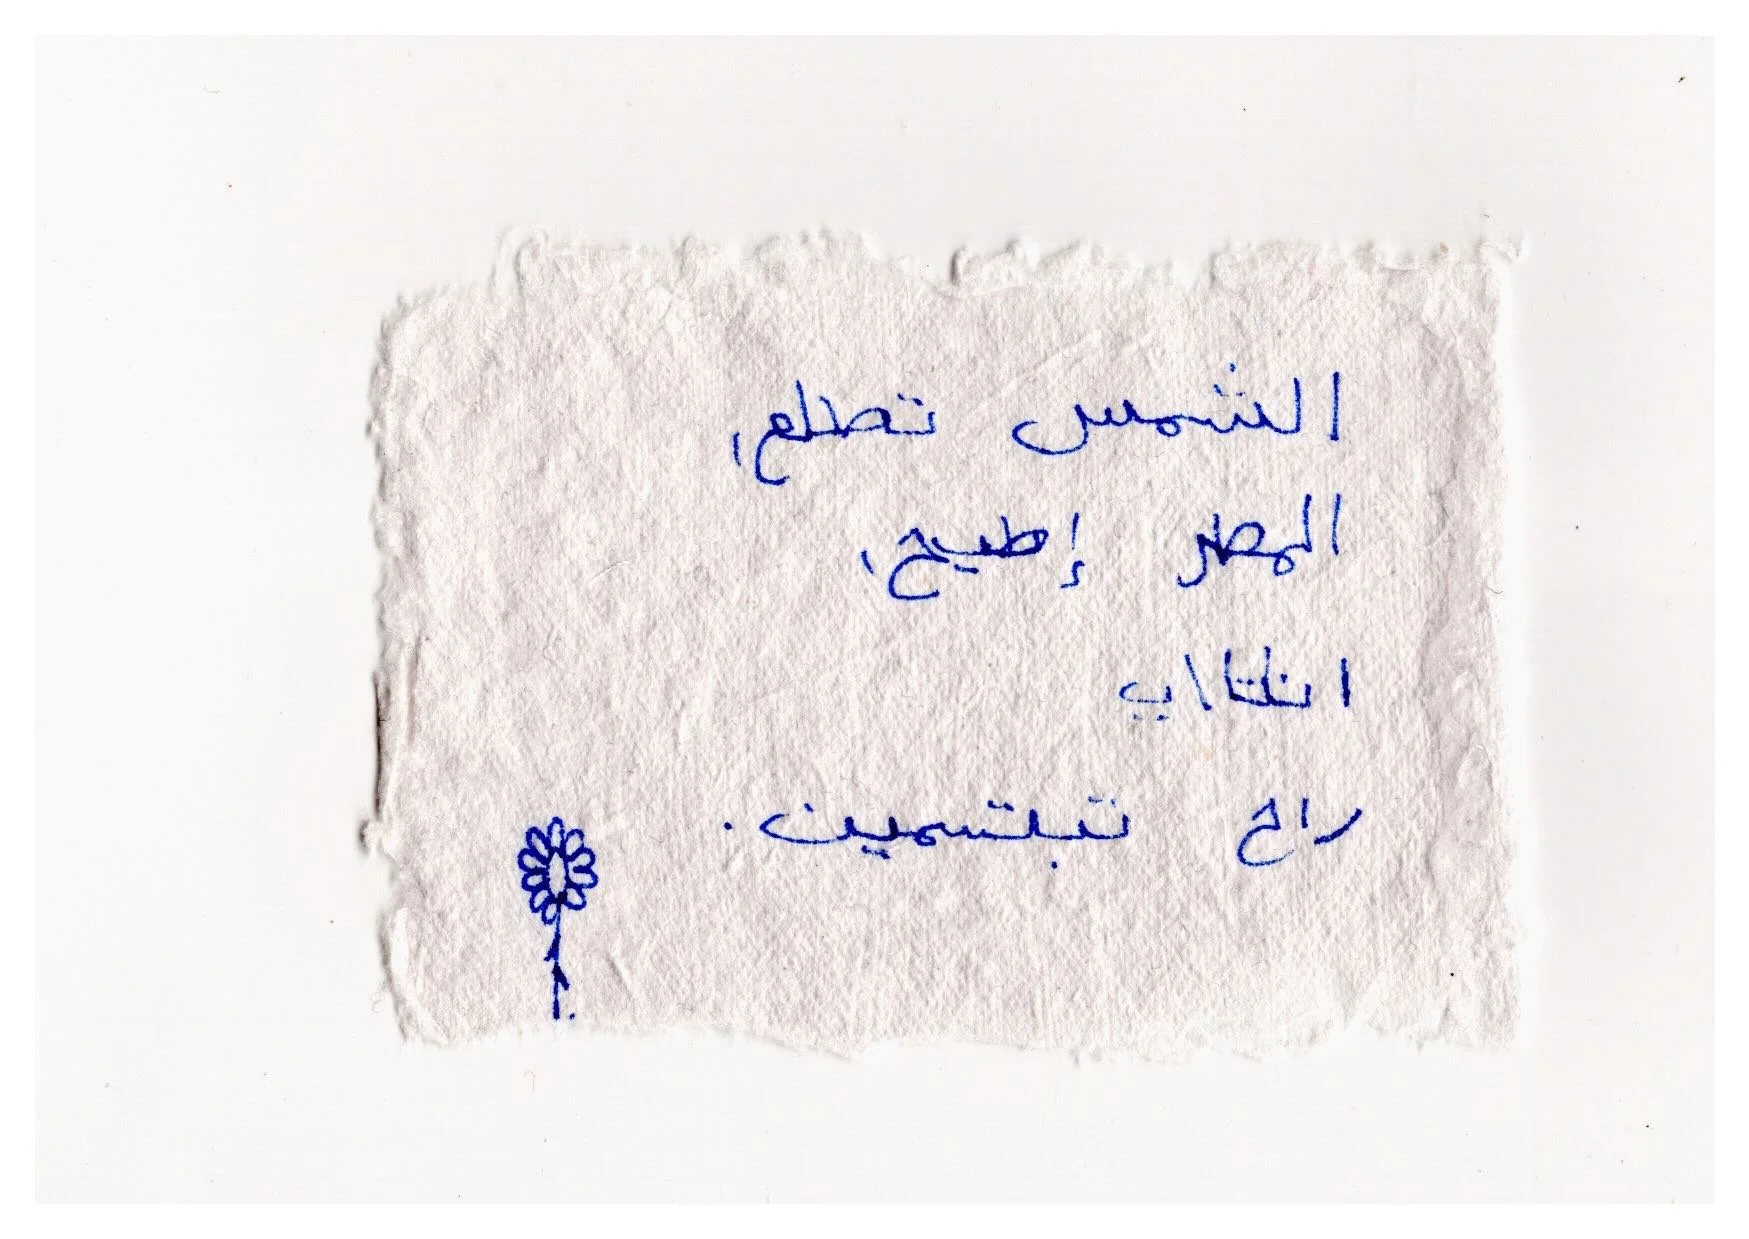 الشمس تطلع،
المطر إطيح،
راح تبتسمين.